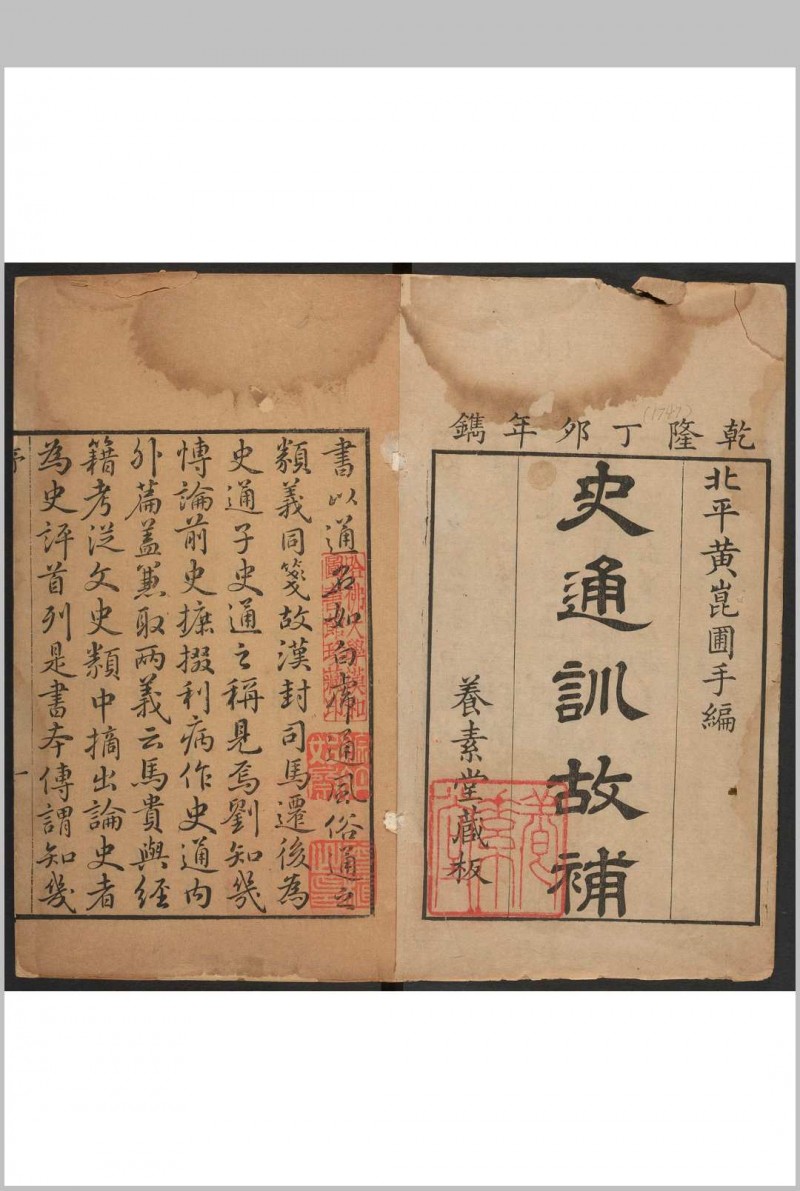 乾隆丁卯年鐫
(1747)
北平黃崑圃手編
史通訓故補
養素堂藏板
書以通名如白虎通風俗通之
類義同箋故漢封司馬遷後為
史通子史通之稱見焉劉知幾
博論前史摭掇利病作史通內
外篇蓋兼取兩義云馬貴與經
籍考從文史類中摘出論史者
為史評首列是書本傳謂知幾
序
一
哈佛大學漢和
圖書館珍藏印